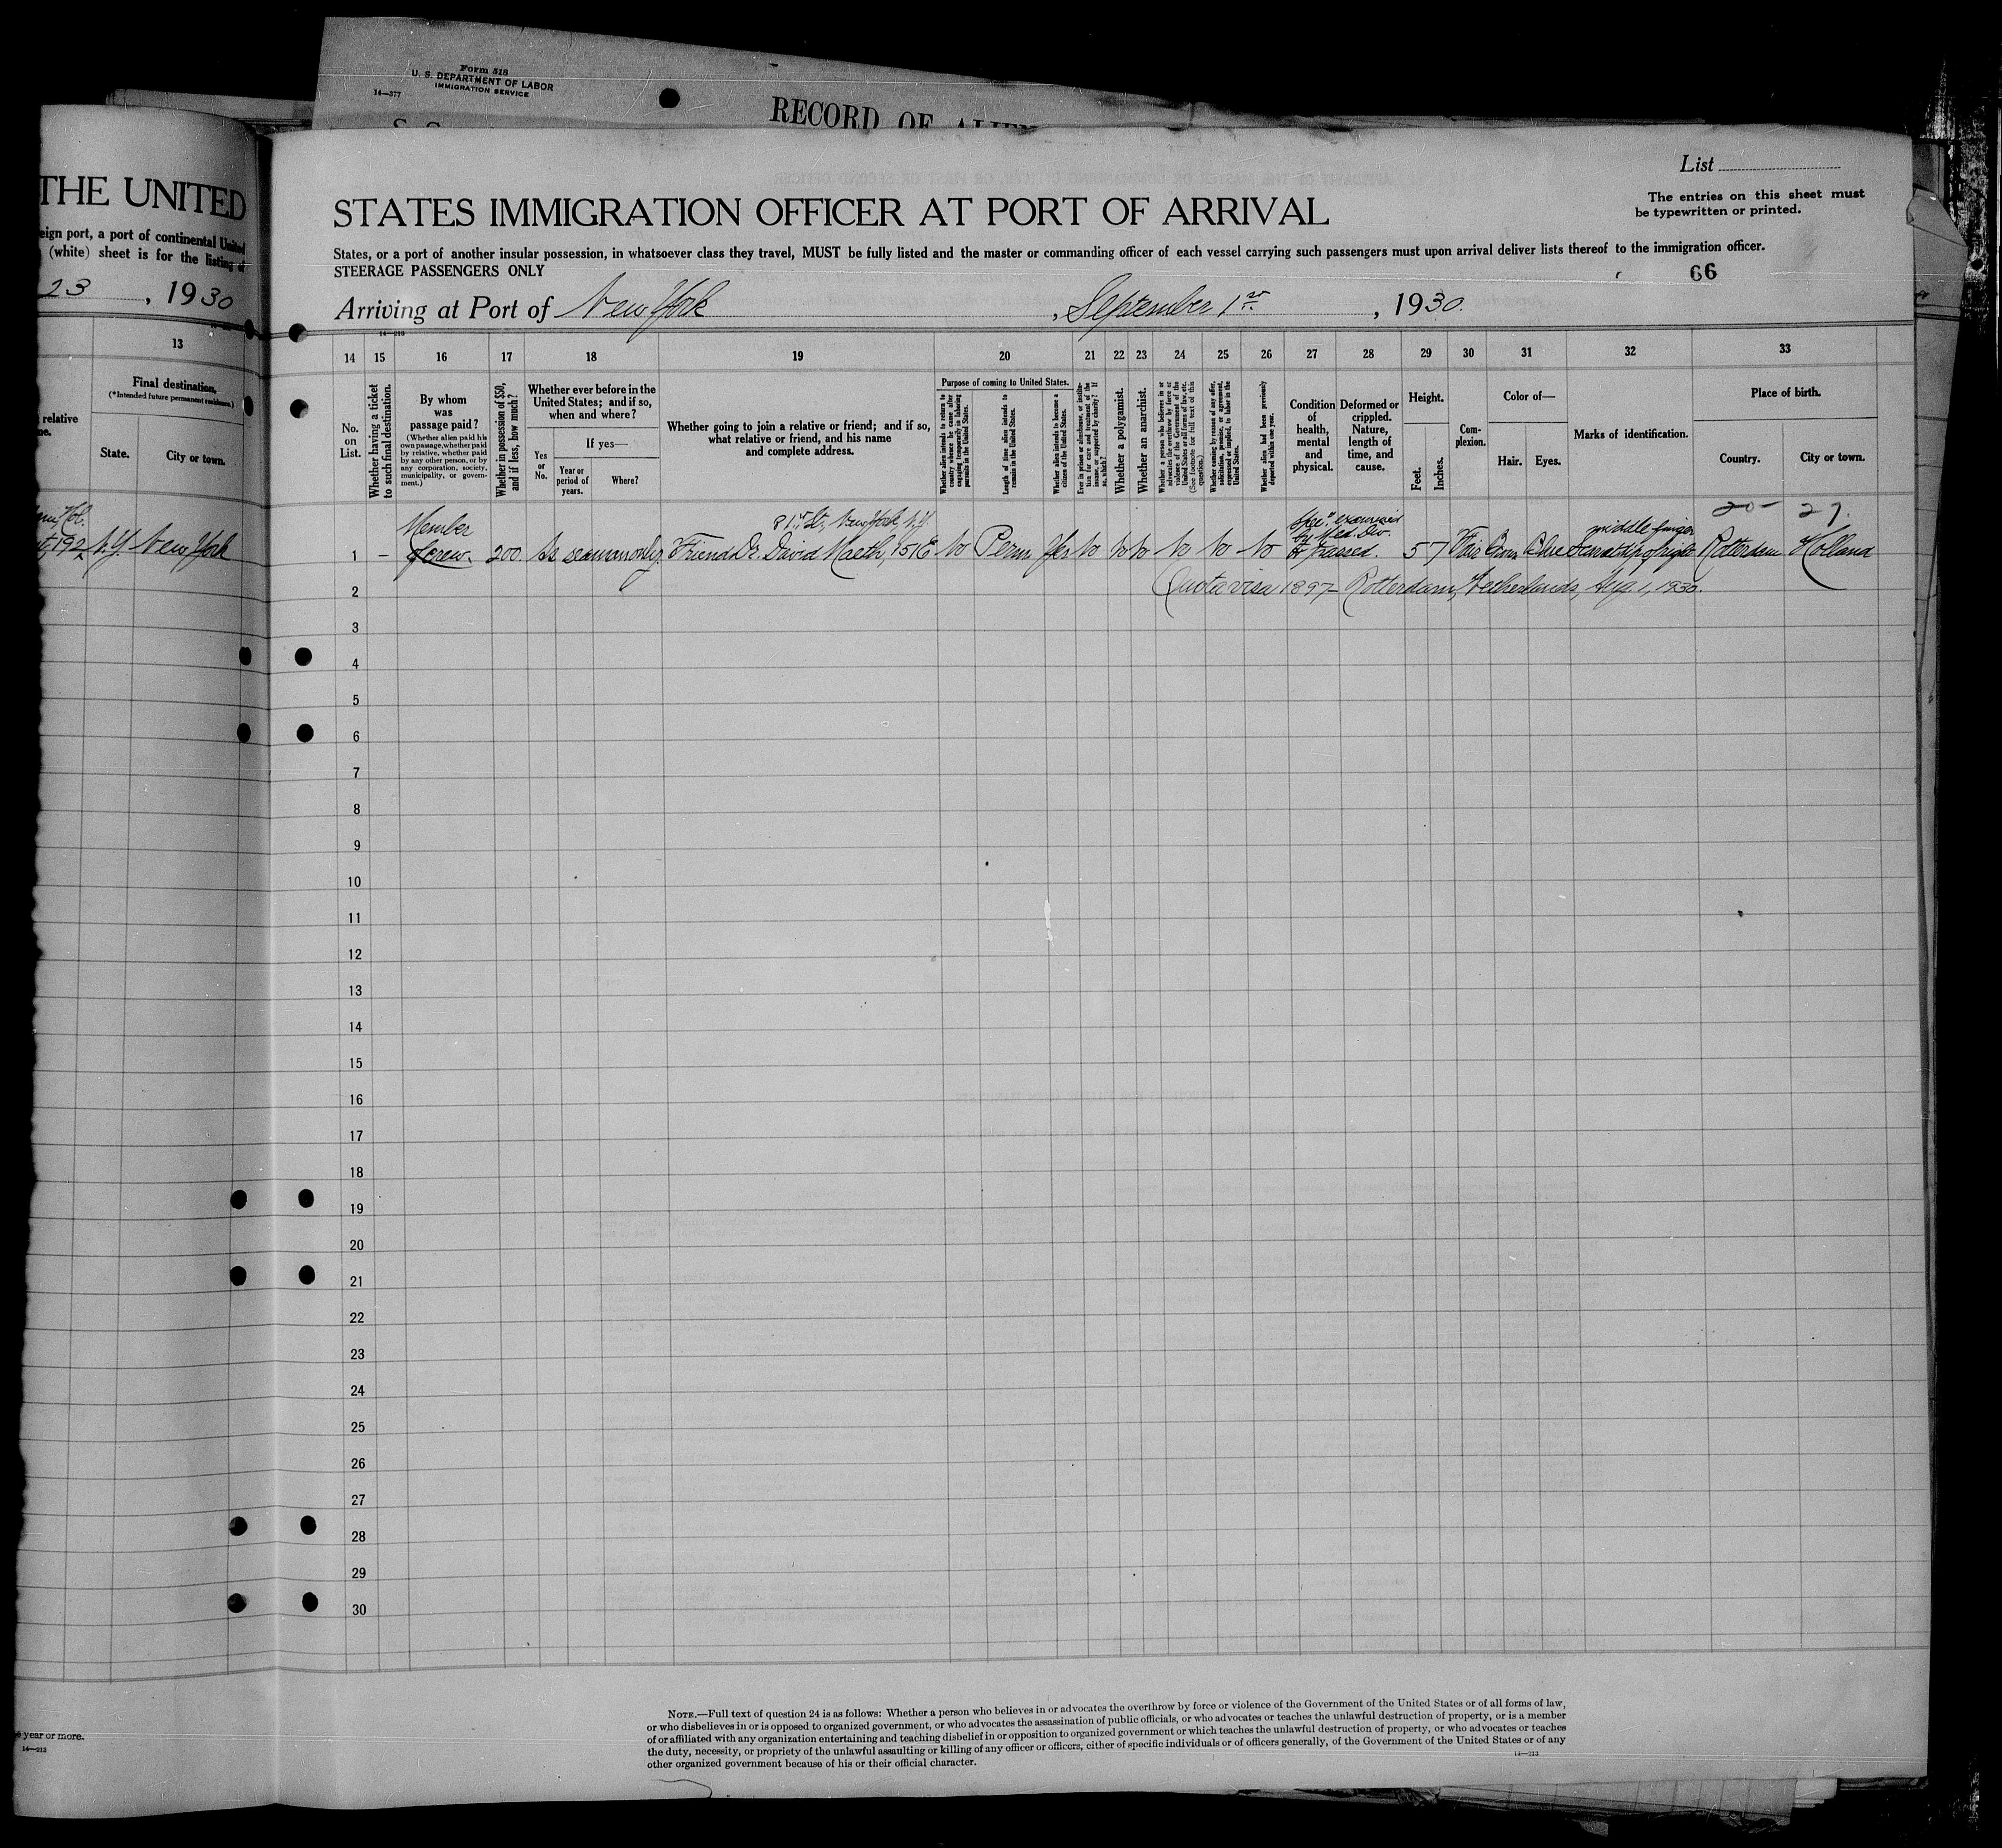 Form 518
U. S. DEPARTMENT OF LABOR
IMMIGRATION SERVICE
14—377
RECORD OF ALIEN
THE UNITED
eign port, a port of continental United
(white) sheet is for the listing of
23, 1930
13
Final destination,
(*Intended future permanent residence.)
relative
State.
City or town.
N.Y New York
year or more.
14—213
List
The entries on this sheet must
be typewritten or printed.
STATES IMMIGRATION OFFICER AT PORT OF ARRIVAL
States, or a port of another insular possession, in whatsoever class they travel, MUST be fully listed and the master or commanding officer of each vessel carrying such passengers must upon arrival deliver lists thereof to the immigration officer.
STEERAGE PASSENGERS ONLY
66
Arriving at Port of New York, September 1st, 1930.
14—213
14 15 16 17 18 19 20 21 22 23 24 25 26 27 28 29 30 31 32 33
No. on List.
Whether having a ticket to such final destination.
By whom was passage paid?
(Whether alien paid his own passage, whether paid by relative, whether paid by any other person, or by any corporation, society, municipality, or government.)
Whether in possession of $50, and if less, how much?
Whether ever before in the United States; and if so, when and where?
Yes or No.
If yes—
Year or period of years.
Where?
Whether going to join a relative or friend; and if so, what relative or friend, and his name and complete address.
Purpose of coming to United States.
Whether alien intends to return to country whence he came after engaging temporarily in laboring pursuits in the United States.
Length of time alien intends to remain in the United States.
Whether alien intends to become a citizen of the United States.
Ever in prison or almshouse, or institution for care and treatment of the insane, or supported by charity? If so, which?
Whether a polygamist.
Whether an anarchist.
Whether a person who believes in or advocates the overthrow by force or violence of the Government of the United States or all forms of law, etc. (See footnote for full text of this question.)
Whether coming by reason of any offer, solicitation, promise, or agreement, expressed or implied, to labor in the United States.
Whether alien had been previously deported within one year.
Condition of health, mental and physical.
Deformed or crippled. Nature, length of time, and cause.
Height.
Feet.
Inches.
Complexion.
Color of—
Hair.
Eyes.
Marks of identification.
Place of birth.
Country.
City or town.
20- 27.
Member 81st St., New York, N.Y. Spec. examined by Med. Div. middle finger
1 – crew. 200. As seaman only. Friend Dr. David 151 E No Perm Yes No No No No No No & passed. 5 7 Fair Brn Blue Rotterdam Holland
2 Quota visa 1897 – Rotterdam, Netherlands, Aug. 1, 1930.
3
4
5
6
7
8
9
10
11
12
13
14
15
16
17
18
19
20
21
22
23
24
25
26
27
28
29
30
NOTE.—Full text of question 24 is as follows: Whether a person who believes in or advocates the overthrow by force or violence of the Government of the United States or of all forms of law,
or who disbelieves in or is opposed to organized government, or who advocates the assassination of public officials, or who advocates or teaches the unlawful destruction of property, or is a member
of or affiliated with any organization entertaining and teaching disbelief in or opposition to organized government or which teaches the unlawful destruction of property, or who advocates or teaches
the duty, necessity, or propriety of the unlawful assaulting or killing of any officer or officers, either of specific individuals or of officers generally, of the Government of the United States or of any
other organized government because of his or their official character.
14—213